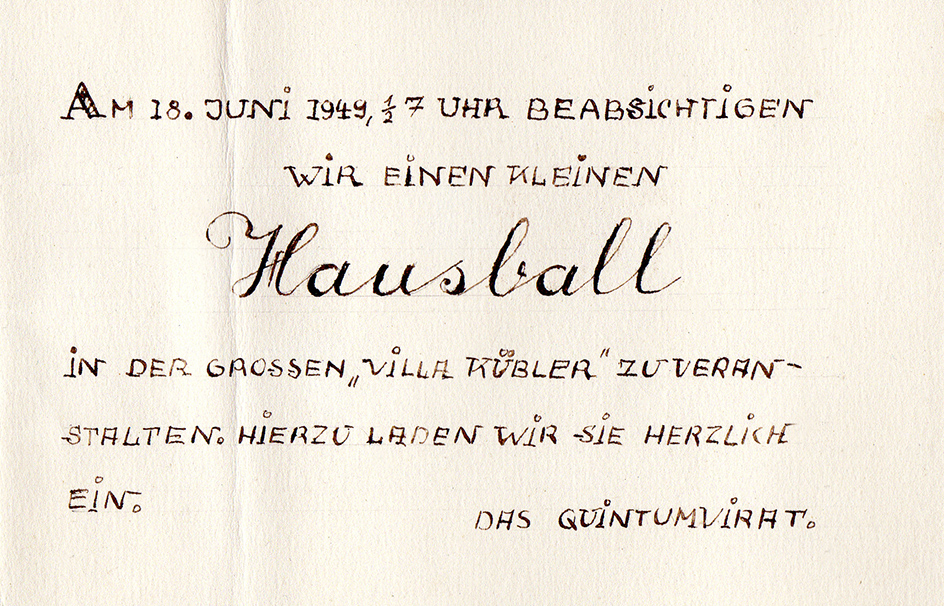 AM 18. JUNI 1949, ½ 7 UHR BEABSICHTIGEN
WIR EINEN KLEINEN
Hausball
IN DER GROSSEN „VILLA KÜBLER" ZU VERAN-
STALTEN. HIERZU LADEN WIR SIE HERZLICH
EIN.
DAS QUINTUMVIRAT.